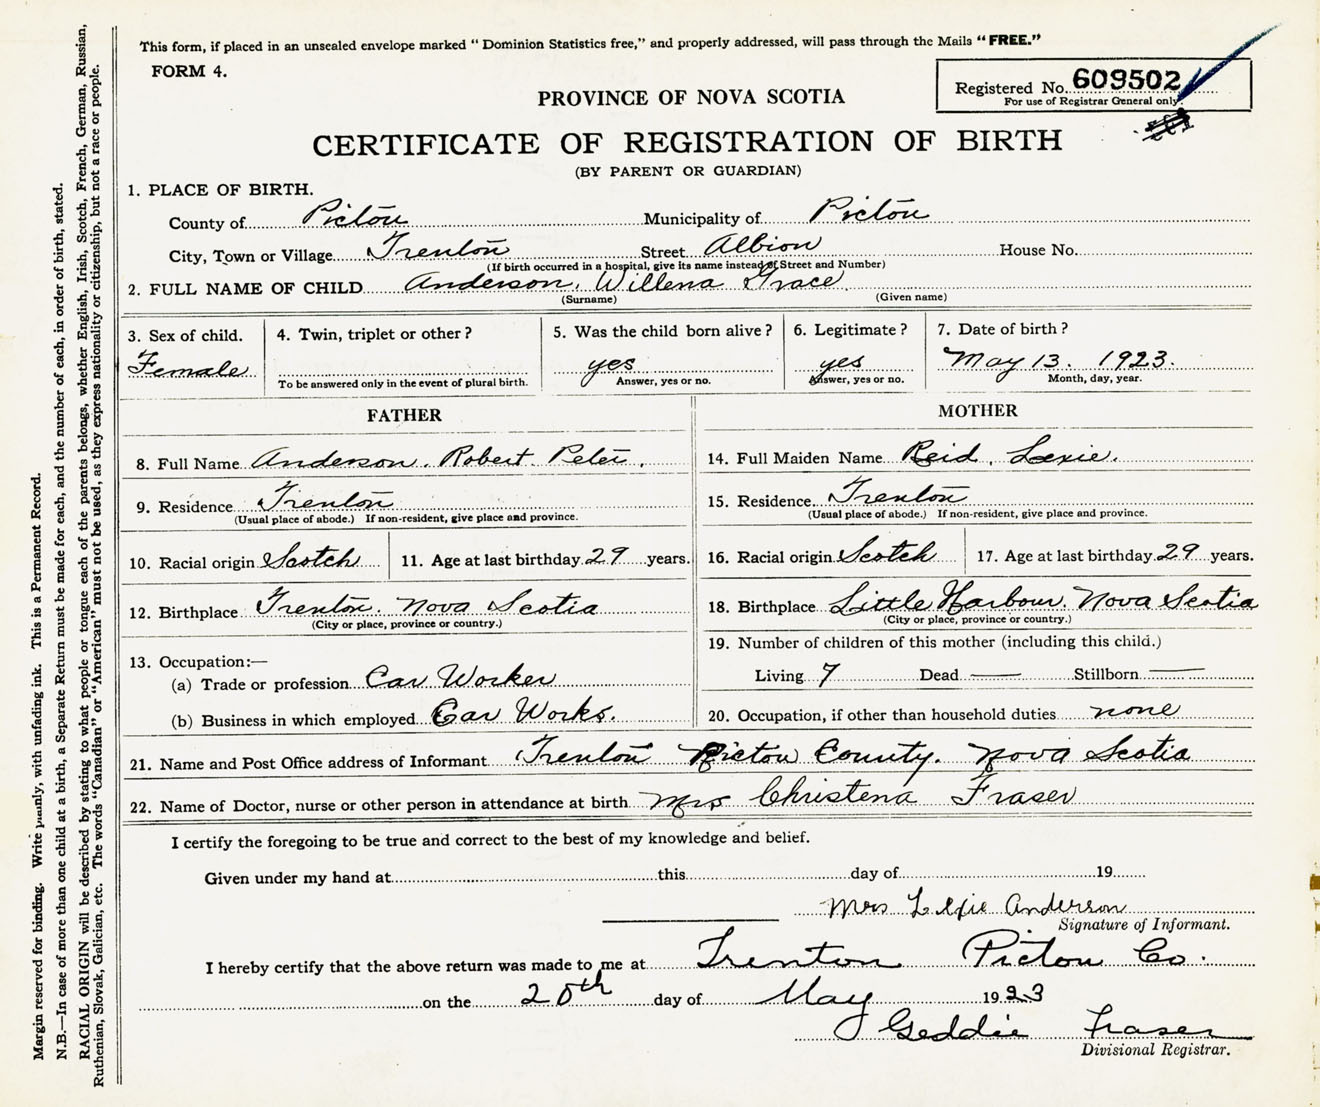 This form, if placed in an unsealed envelope marked “ Dominion Statistics free,” and properly addressed, will pass through the Mails “FREE.”
FORM 4.
Registered No. 609502
For use of Registrar General only.
PROVINCE OF NOVA SCOTIA
CERTIFICATE OF REGISTRATION OF BIRTH
(BY PARENT OR GUARDIAN)
1. PLACE OF BIRTH.
County of Pictou Municipality of Pictou
City, Town or Village Trenton Street Albion House No.
(If birth occurred in a hospital, give its name instead of Street and Number)
2. FULL NAME OF CHILD Anderson, Willena Grace
(Surname) (Given name)
3. Sex of child. 4. Twin, triplet or other ? 5. Was the child born alive ? 6. Legitimate ? 7. Date of birth ?
Female yes yes May 13. 1923.
To be answered only in the event of plural birth. Answer, yes or no. Answer, yes or no. Month, day, year.
FATHER MOTHER
8. Full Name Anderson. Robert Peter. 14. Full Maiden Name Reid, Lexie.
9. Residence Trenton 15. Residence Trenton
(Usual place of abode.) If non-resident, give place and province. (Usual place of abode.) If non-resident, give place and province.
10. Racial origin Scotch 11. Age at last birthday 29 years. 16. Racial origin Scotch 17. Age at last birthday 29 years.
12. Birthplace Trenton. Nova Scotia 18. Birthplace Little Harbour. Nova Scotia
(City or place, province or country.) (City or place, province or country.)
19. Number of children of this mother (including this child.)
13. Occupation:—
(a) Trade or profession Car Worker Living 7 Dead — Stillborn —
(b) Business in which employed Car Works. 20. Occupation, if other than household duties none
21. Name and Post Office address of Informant Trenton Pictou County. Nova Scotia
22. Name of Doctor, nurse or other person in attendance at birth Mrs Christena Fraser
I certify the foregoing to be true and correct to the best of my knowledge and belief.
Given under my hand at this day of 19
Mrs Lexie Anderson
Signature of Informant.
I hereby certify that the above return was made to me at Trenton Pictou Co.
on the 20th day of May 1923
Geddie Fraser
Divisional Registrar.
Margin reserved for binding. Write plainly, with unfading ink. This is a Permanent Record.
N.B.—In case of more than one child at a birth, a Separate Return must be made for each, and the number of each, in order of birth, stated.
RACIAL ORIGIN will be described by stating to what people or tongue each of the parents belongs, whether English, Irish, Scotch, French, German, Russian,
Ruthenian, Slovak, Galician, etc. The words “Canadian” or “American” must not be used, as they express nationality or citizenship, but not a race or people.